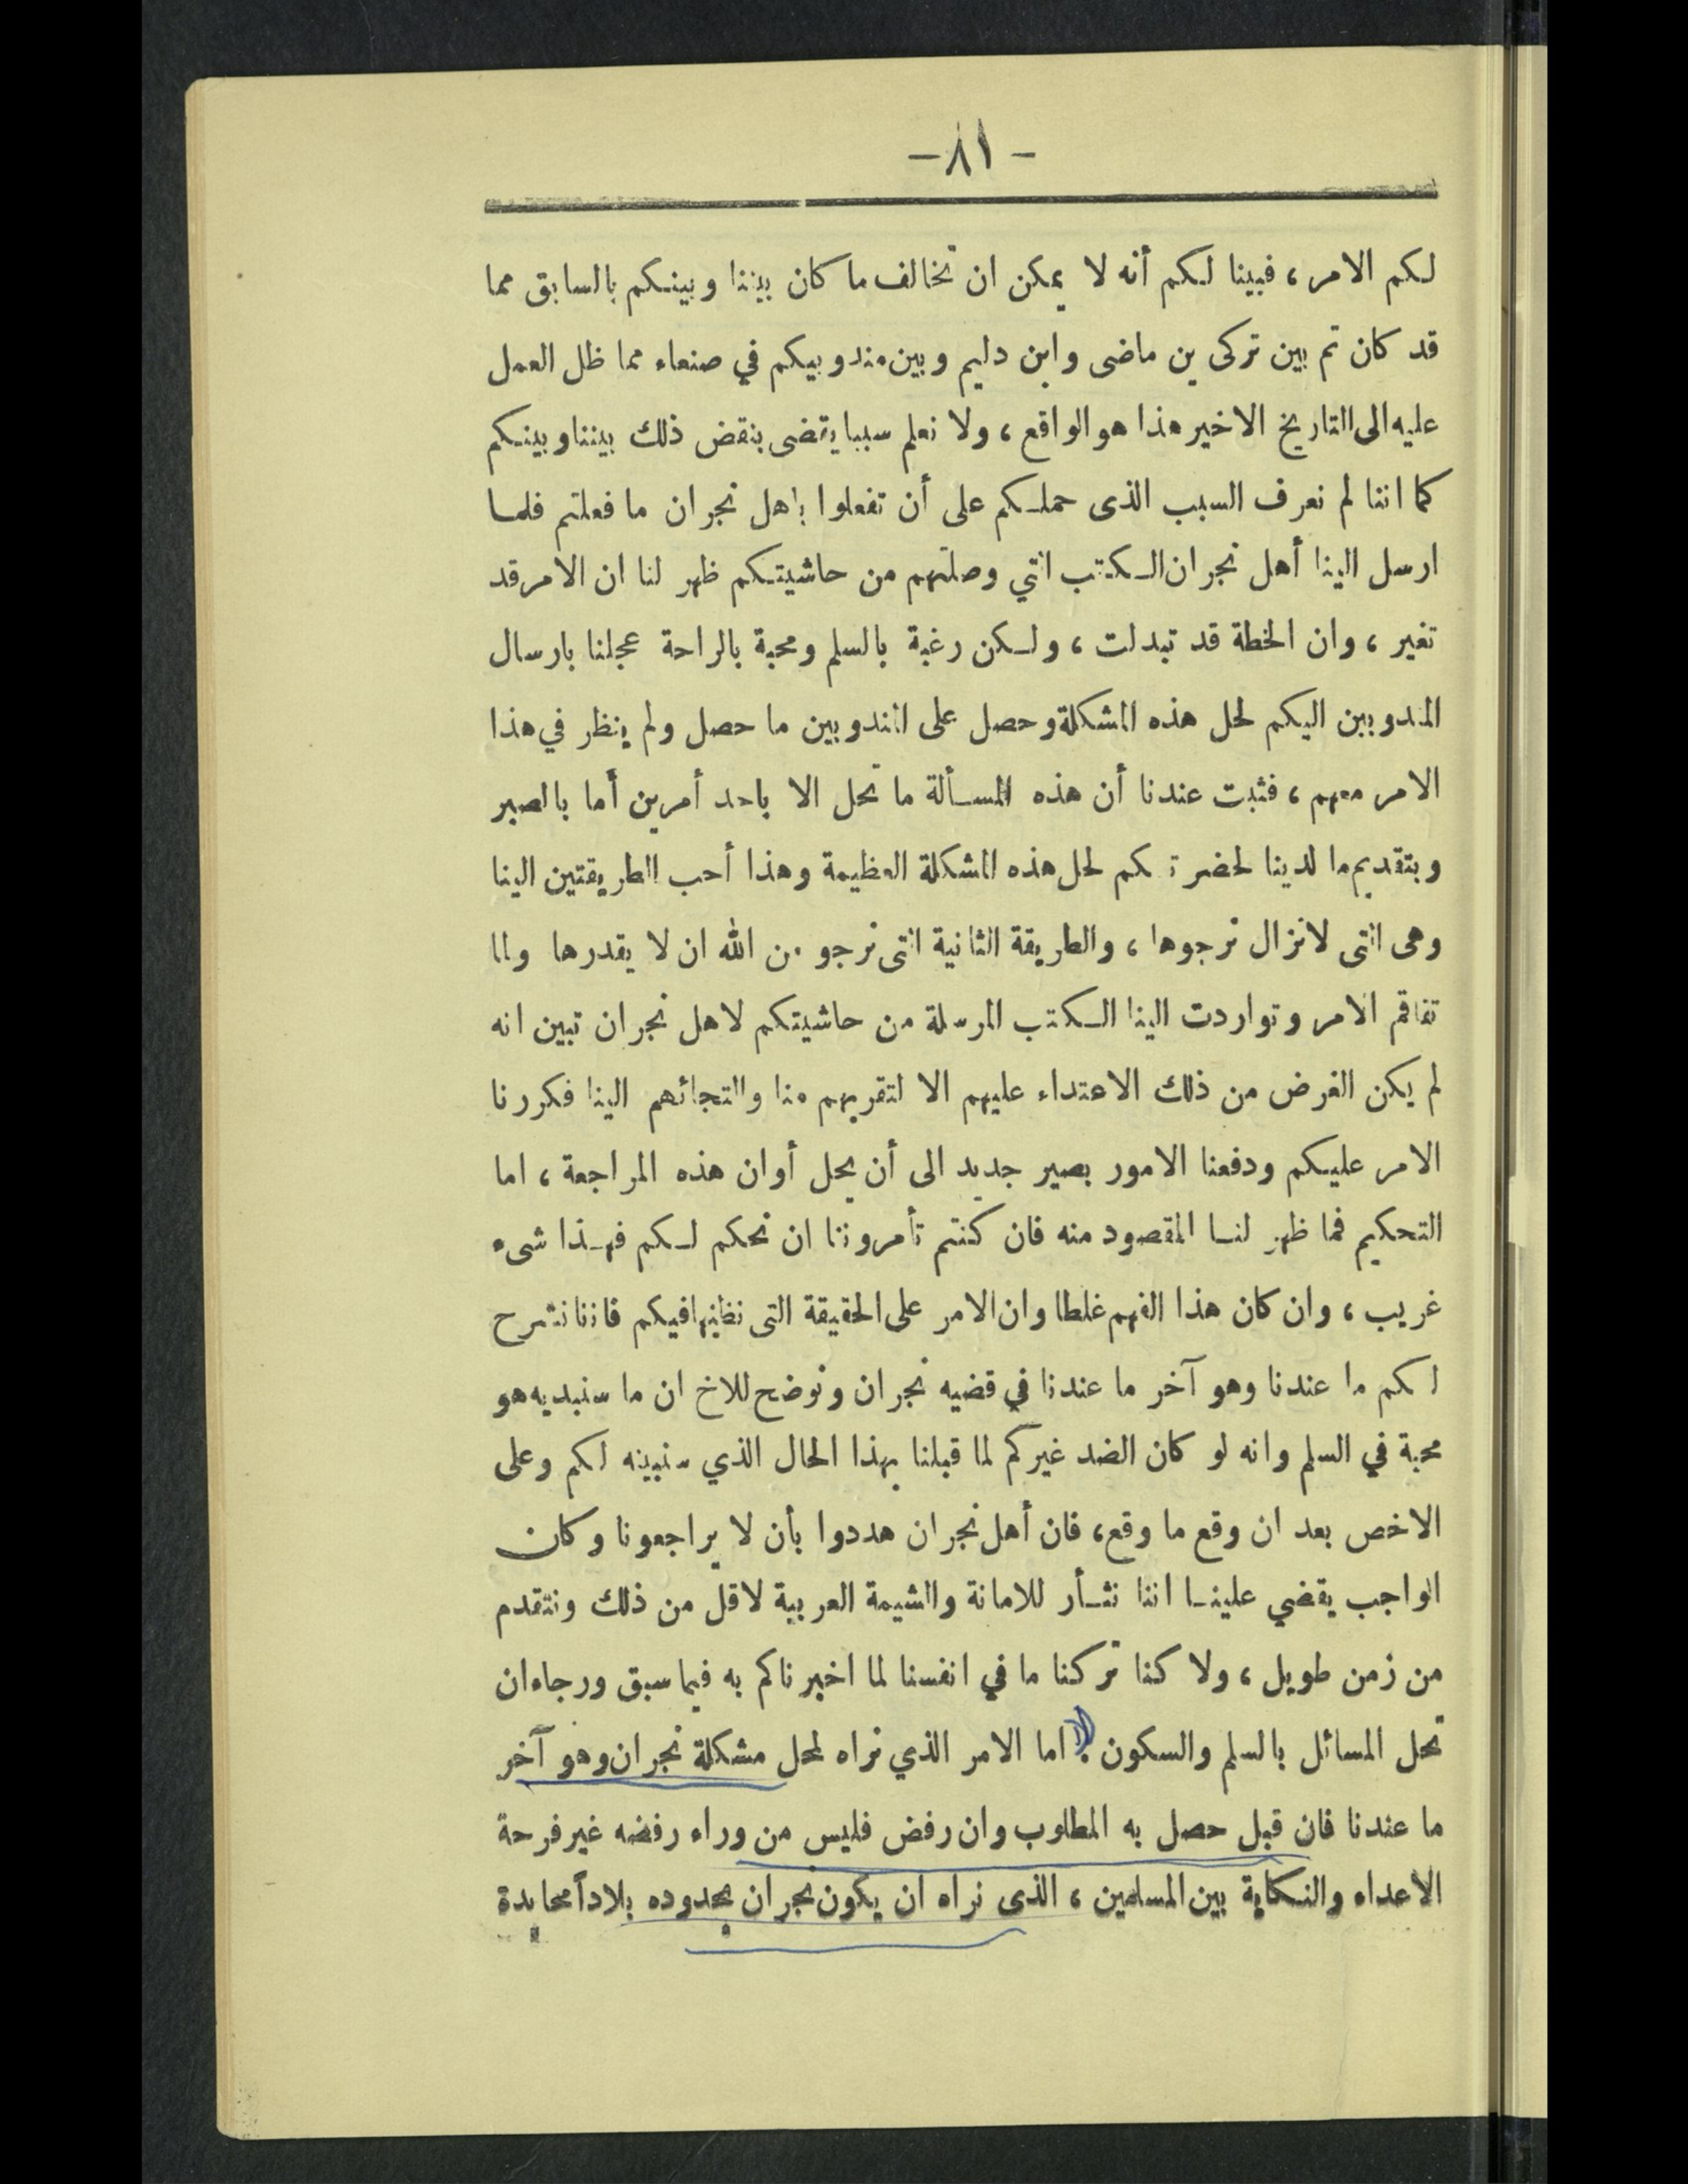 - ٨١ -
لكم الامر ، فبينا لكم أنه لا يمكن ان تخالف ما كان بيننا وبينكم بالسابق مما
قد كان تم بين تركى بن ماضى وابن دليم وبين مندوبيكم في صنعاء مما ظل العمل
عليه الى التاريخ الاخير هذا هو الواقع ، ولا نعلم سببا يقضى بنقض ذلك بيننا وبينكم
كما اننا لم نعرف السبب الذى حملكم على أن تفعلوا باهل نجران ما فعلتم فلما
ارسل الينا أهل نجران الكتب التي وصلتهم من حاشيتكم ظهر لنا ان الامر قد
تغير ، وان الخطة قد تبدلت ، ولكن رغبة بالسلم ومحبة بالراحة عجلنا بارسال
المندوبين اليكم لحل هذه المشكلة وحصل على المندوبين ما حصل ولم ينظر في هذا
الامر معهم ، فثبت عندنا أن هذه المسألة ما تحل الا باحد أمرين أما بالصبر
وبتقديم ما لدينا لحضرتكم لحل هذه المشكلة العظيمة وهذا أحب الطريقتين الينا
وهى التى لانزال نرجوها ، والطريقة الثانية التى نرجو من الله ان لا يقدرها ولما
تفاقم الامر وتواردت الينا الكتب المرسلة من حاشيتكم لاهل نجران تبين انه
لم يكن الغرض من ذلك الاعتداء عليهم الا لتقربهم منا والتجائهم الينا فكررنا
الامر عليكم ودفعنا الامور بصبر جديد الى أن يحل أوان هذه المراجعة ، اما
التحكيم فما ظهر لنا المقصود منه فان كنتم تأمروننا ان نحكم لكم فهذا شىء
غريب ، وان كان هذا الفهم غلطا وان الامر على الحقيقة التى نظنها فيكم فاننا نشرح
لكم ما عندنا وهو آخر ما عندنا في قضيه نجران ونوضح للاخ ان ما سنبديه هو
محبة في السلم وانه لو كان الضد غيركم لما قبلنا بهذا الحال الذي سنبينه لكم وعلى
الاخص بعد ان وقع ما وقع ، فان أهل نجران هددوا بأن لا يراجعونا وكان
الواجب يقضي علينا اننا نثأر للامانة والشيمة العربية لاقل من ذلك ونتقدم
من زمن طويل ، ولا كنا تركنا ما في انفسنا لما اخبرناكم به فيما سبق ورجاء ان
تحل المسائل بالسلم والسكون . اما الامر الذي نراه لحل مشكلة نجران وهو آخر
ما عندنا فان قبل حصل به المطلوب وان رفض فليس من وراء رفضه غير فرحة
الاعداء والنكاية بين المسلمين ، الذى نراه ان يكون نجران بحدوده بلاداً محايدة